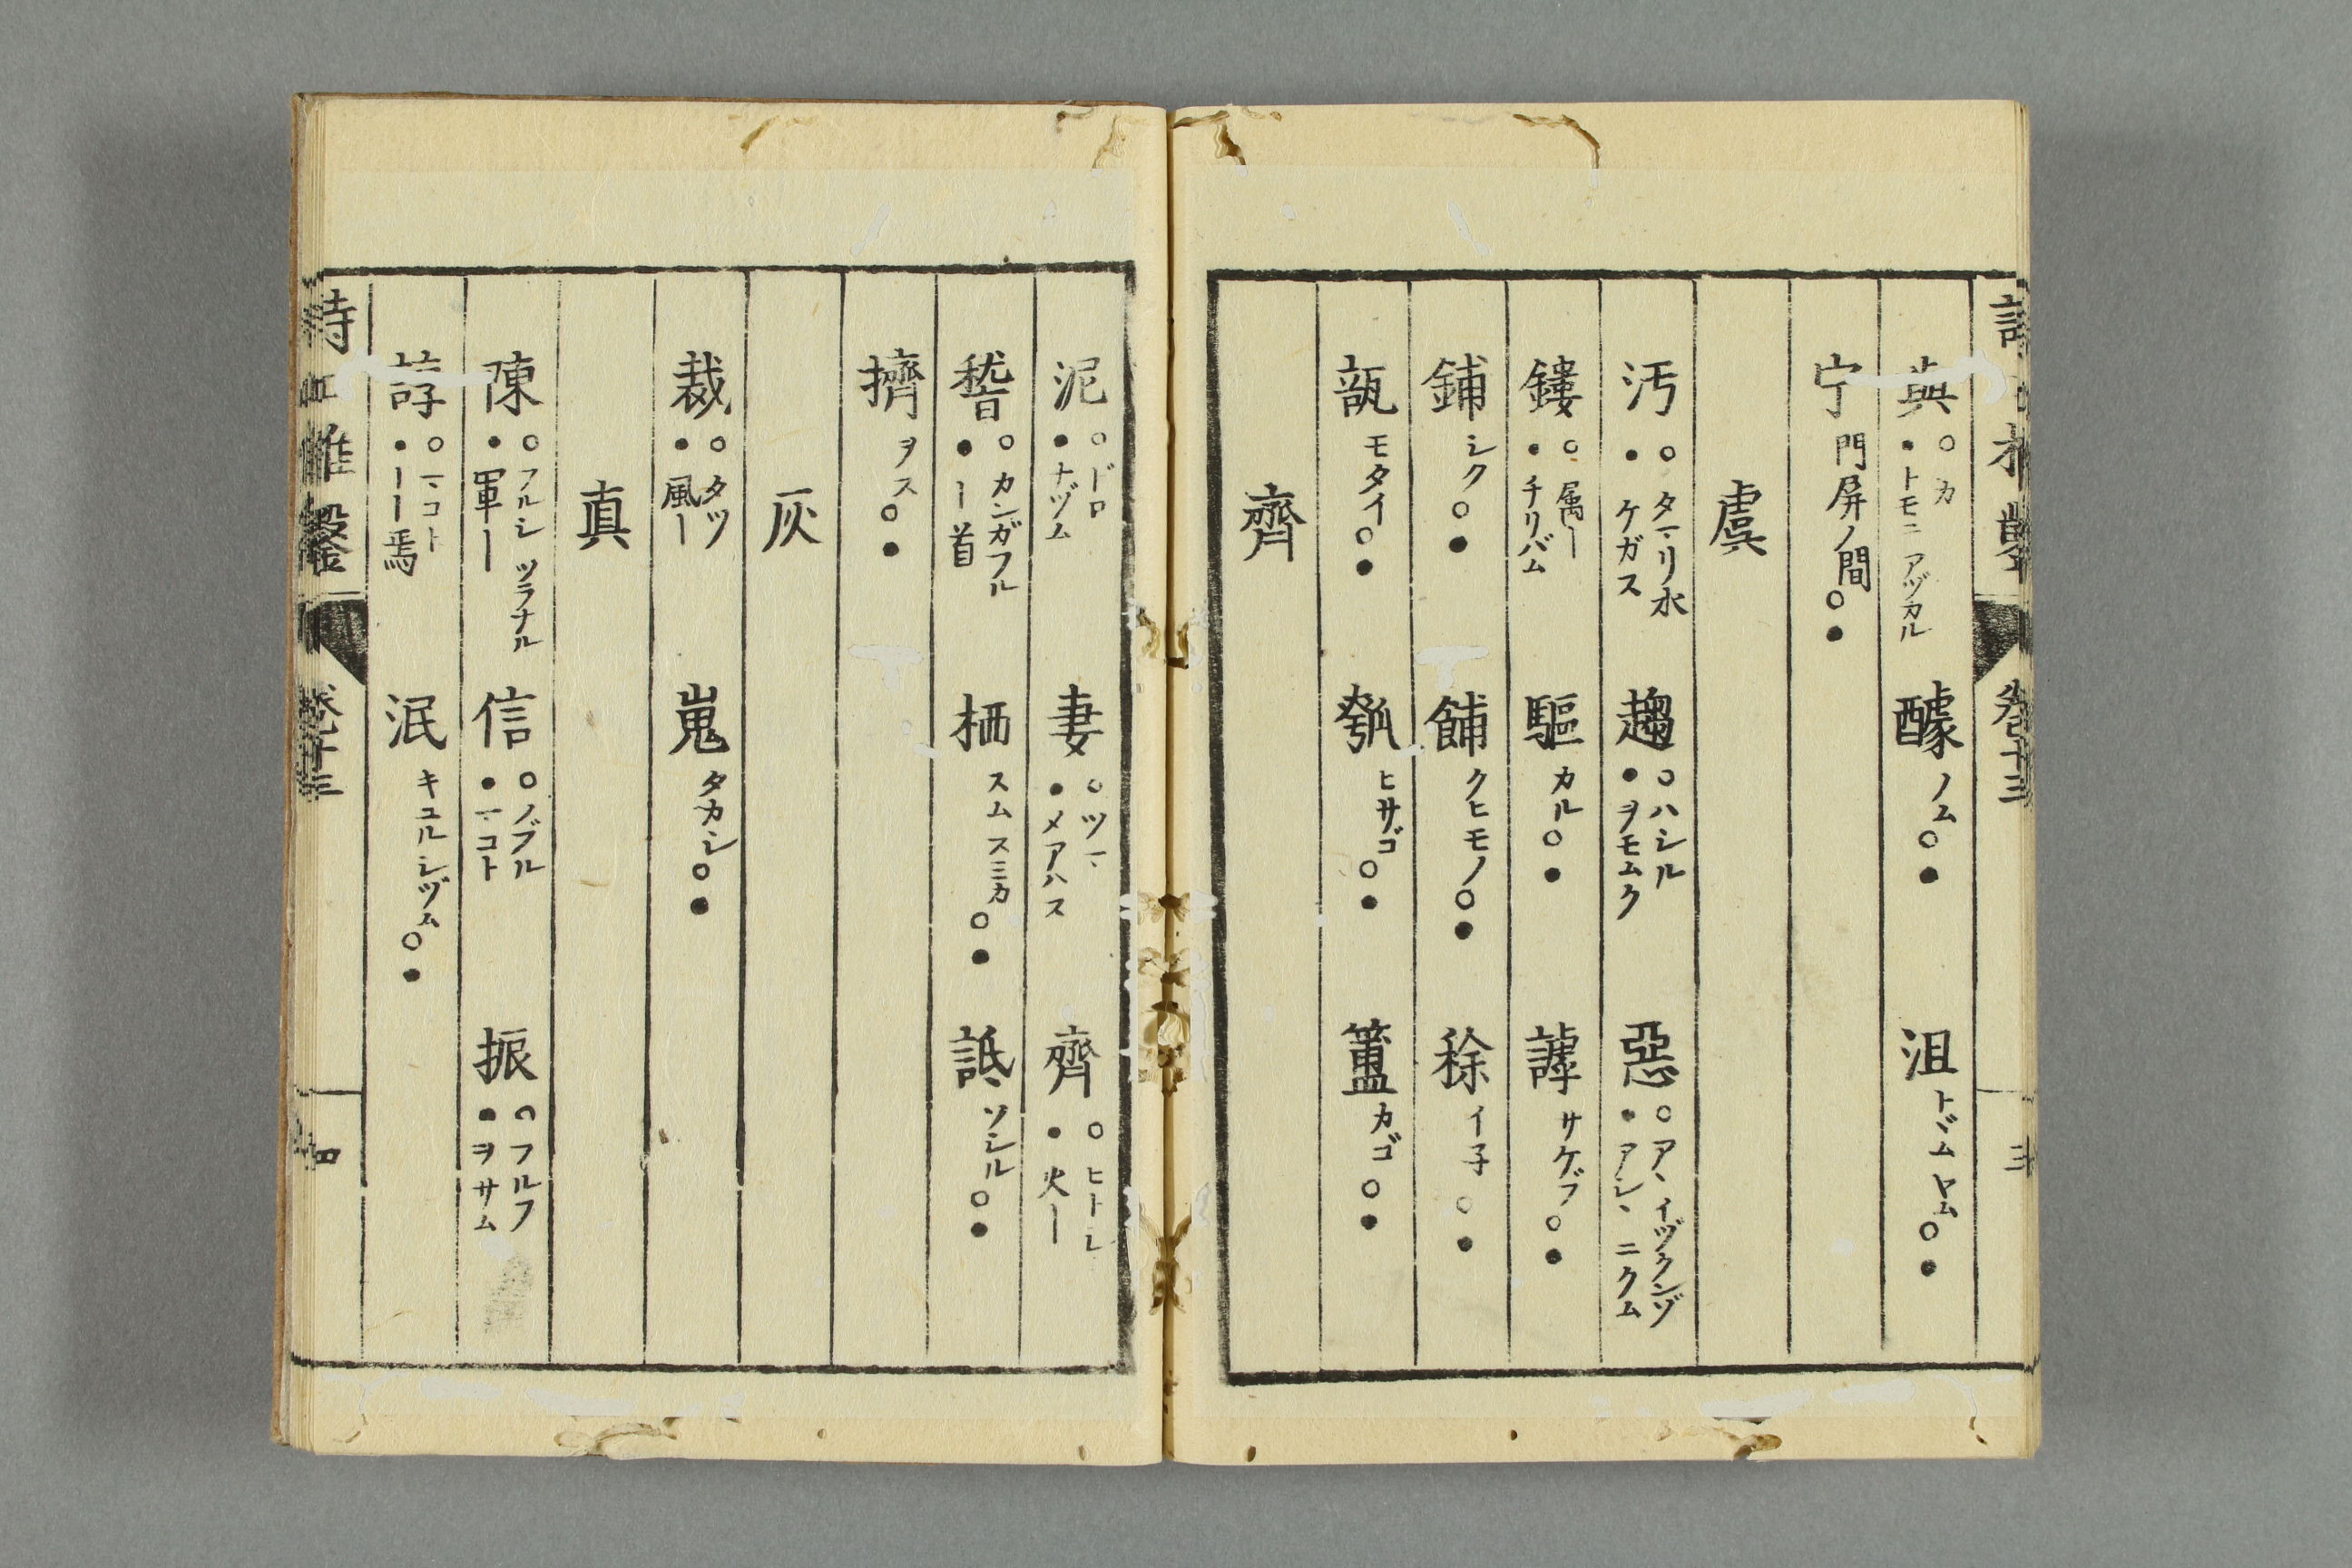 與 ○カ ●トモニ アヅカル 醵 ノム○● 沮 トヾム ヤム○●
宁 門屏ノ間○●
虞
汚 ○タマリ水 ●ケガス 趨 ○ハシル ●ヲモムク 惡 ○アヽ イヅクンゾ ●アシヽ ニクム
鏤 ○属ー ●チリバム 驅 カル○● 謼 サケブ○●
鋪 シク○● 餔 クヒモノ○● 稌 イ子○●
瓿 モタイ○● 瓠 ヒサゴ○● 簠 カゴ○●
齊
泥 ○ドロ ●ナヅム 妻 ○ツマ ●メアハス 齊 ○ヒトシ ●火ー
嵆 ○カンガフル ●ー首 栖 スム スミカ○● 詆 ソシル○●
擠 ヲス○●
灰
裁 ○タツ ●風ー 嵬 タカシ○●
真
陳 ○フルシ ツラナル ●軍ー 信 ○ノブル ●マコト 振 ○フルフ ●ヲサム
諄 ○マコト ●ーー焉 泯 キユル シヅム○●
卷十三
四